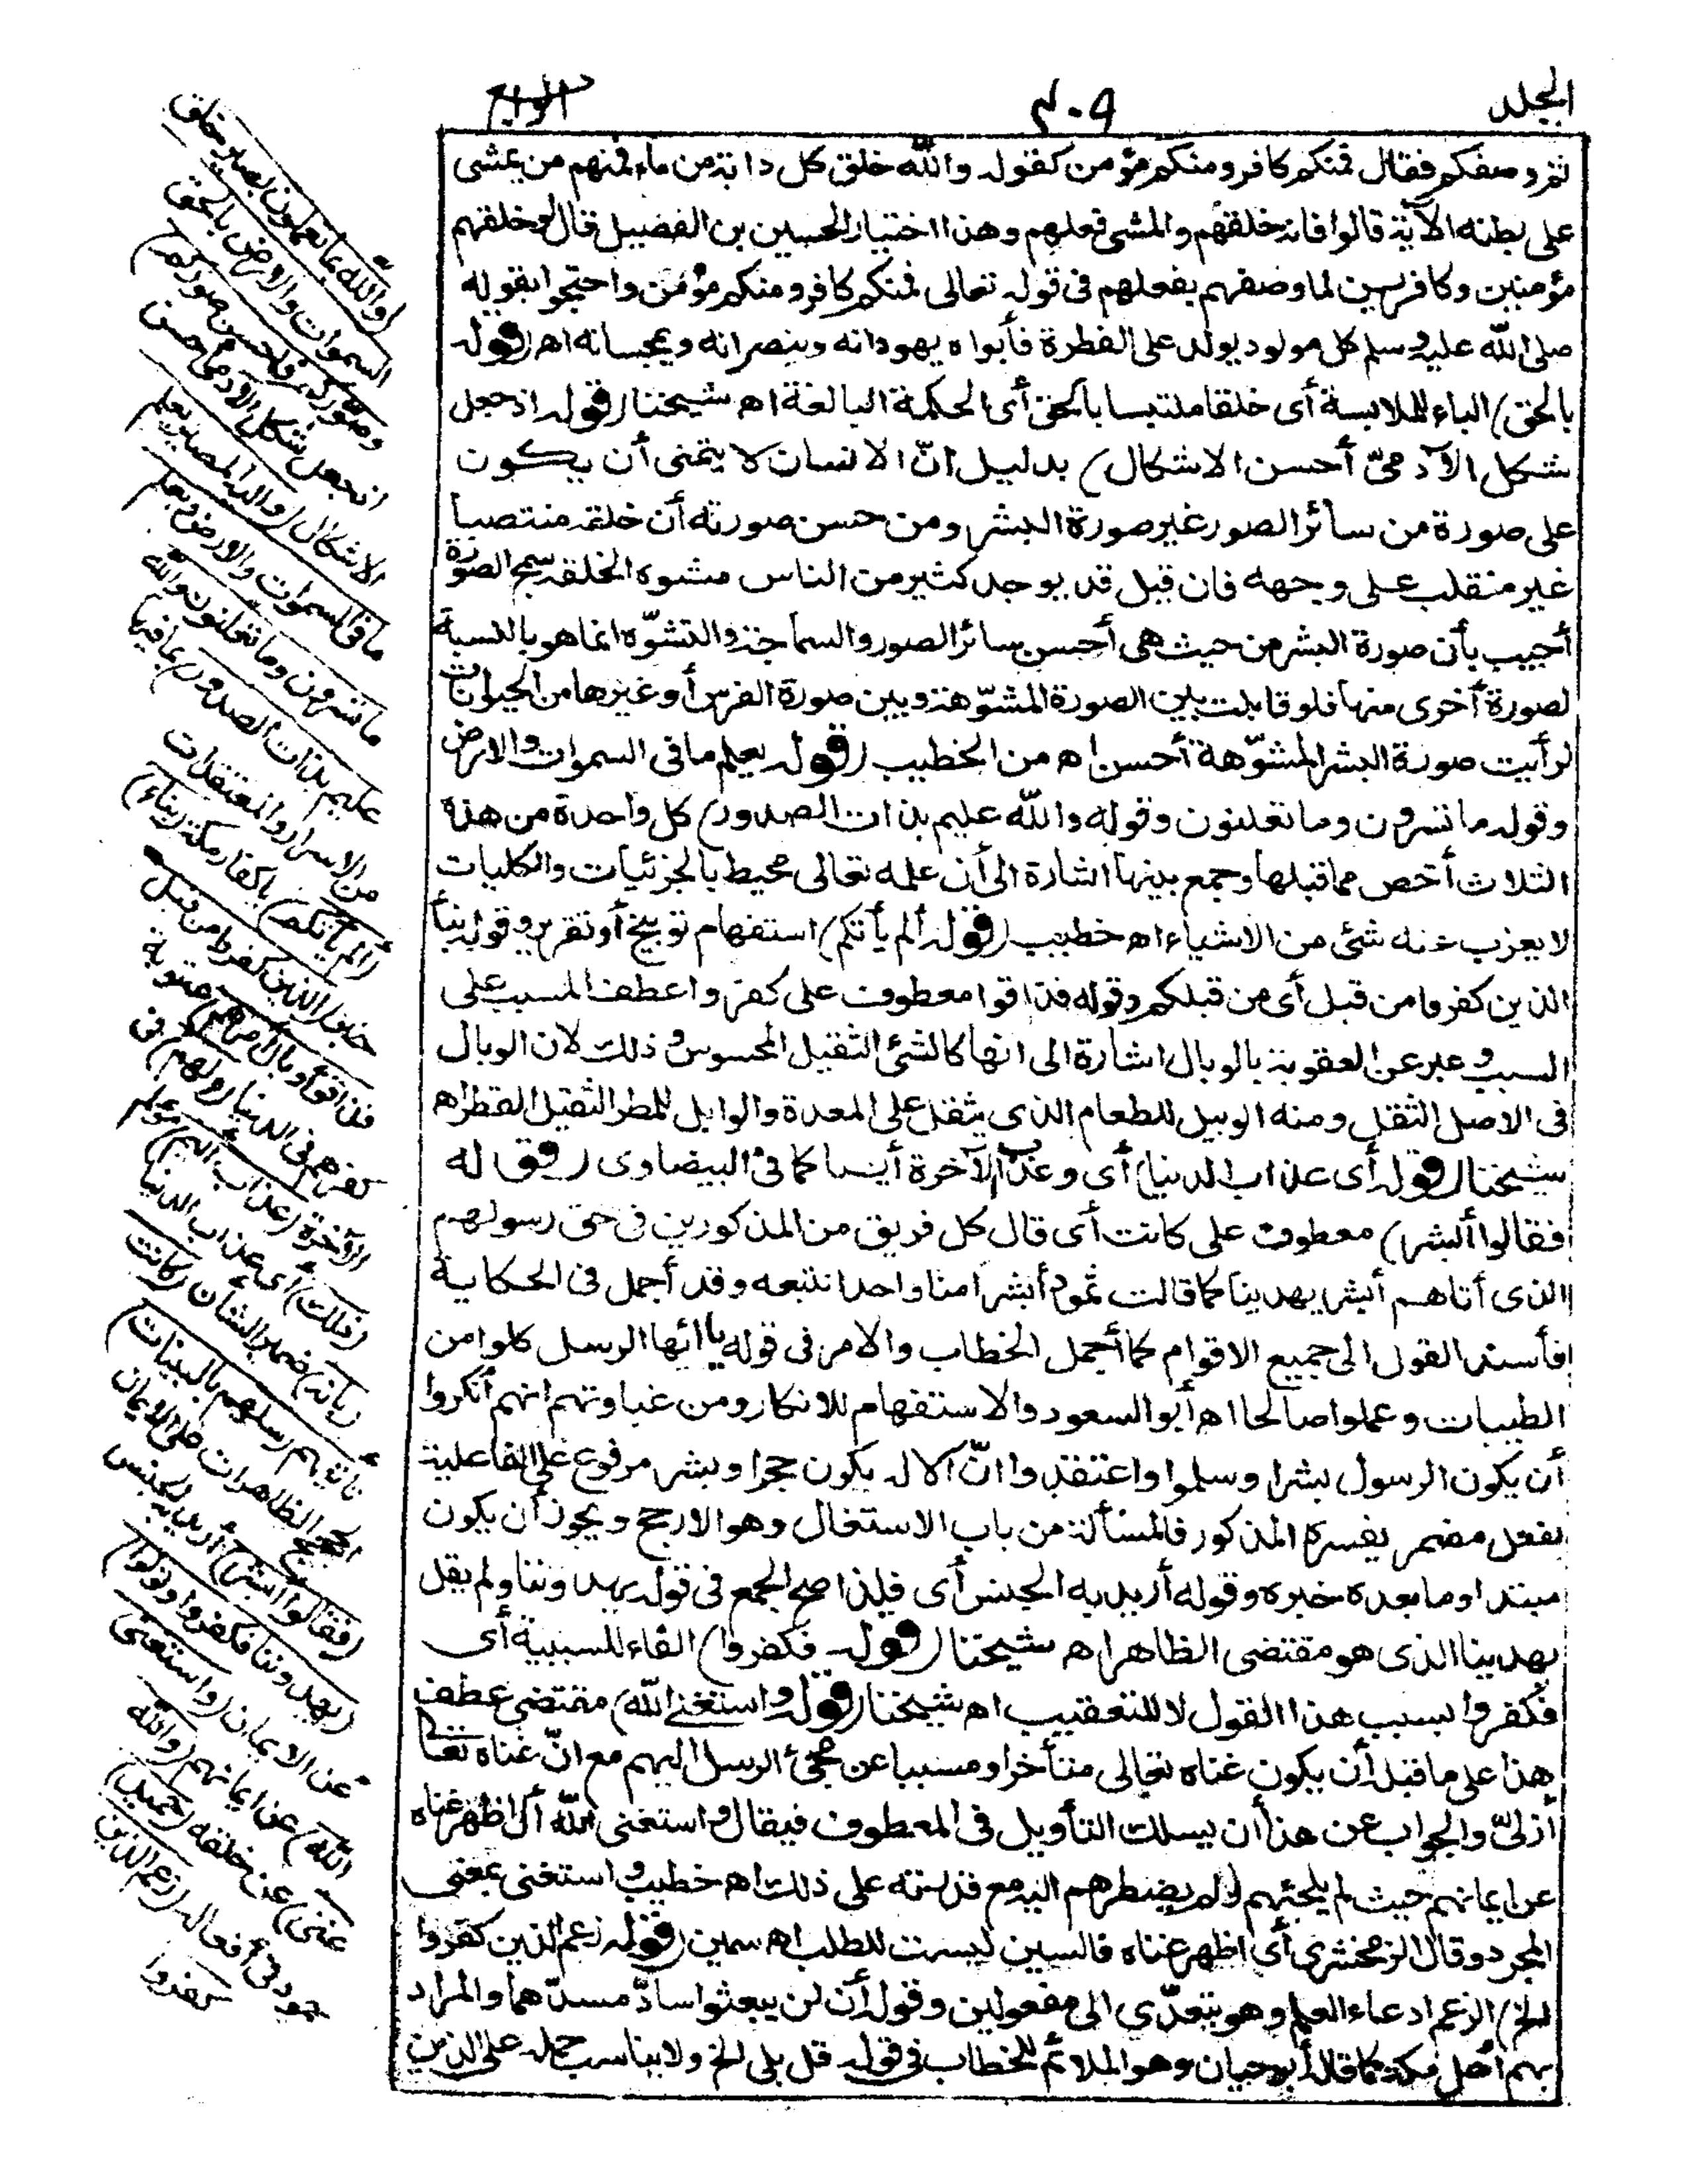 المجلد
٤٠٩
الرابع
ثم وصفكم فقال فمنكم كافر ومنكم مؤمن كقوله والله خلق كل دابة من ماء فمنهم من يمشى
على بطنه الآية قالوا فانه خلقهم والمشى فعلهم وهذا اختيار الحسين بن الفضيل قال لو خلقهم
مؤمنين وكافرين لما وصفهم بفعلهم فى قوله تعالى فمنكم كافر ومنكم مؤمن واحتجوا بقوله
صلى الله عليه وسلم كل مولود يولد على الفطرة فأبواه يهودانه وينصرانه ويمجسانه اه (قوله
بالحق) الباء للملابسة أى خلقا ملتبسا بالحق أى الحكمة البالغة اه شيخنا (قوله اذ جعل
شكل الآدمىّ أحسن الاشكال) بدليل انّ الانسان لا يتمنى أن يكون
على صورة من سائر الصور غير صورة البشر ومن حسن صورته أن خلقه منتصبا
غير منقلب على وجهه فان قيل قد يوجد كثير من الناس مشوه الخلقة سمج الصورة
أجيب بأن صورة البشر من حيث هى أحسن سائر الصور والسماجة والتشوّه انما هو بالنسبة
لصورة أخرى منها فلو قابلت بين الصورة المشوّهة وبين صورة الفرس أو غيرها من الحيوانات
لرأيت صورة البشر المشوّهة أحسن اه من الخطيب (قوله يعلم ما فى السموات والارض
وقوله ما تسرون وما تعلنون وقوله والله عليم بذات الصدور) كل واحدة من هذه
الثلاث أخص مما قبلها وجمع بينها اشارة الى أن علمه تعالى محيط بالجزئيات والكليات
لا يعزب عنه شئ من الاشياء اه خطيب (قوله ألم يأتكم) استفهام توبيخ أو تقرير وقوله نبأ
الذين كفروا من قبل أى من قبلكم وقوله فذاقوا معطوف على كفروا عطف المسبب على
السبب وعبر عن العقوبة بالوبال اشارة الى انها كالشئ الثقيل المحسوس وذلك لان الوبال
فى الاصل الثقل ومنه الوبيل للطعام الذى يثقل على المعدة والوابل للمطر الثقيل القطر اه
شيخنا (قوله أى عذاب الدنيا) أى وعذاب الآخرة أيضا كما فى البيضاوى (قوله
فقالوا أبشر) معطوف على كانت أى قال كل فريق من المذكورين فى حق رسولهم
الذى أتاهم أبشر يهدينا كما قالت ثمود أبشرا منا واحدا نتبعه وقد أجمل فى الحكاية
فأسند القول الى جميع الاقوام كما أجمل الخطاب والامر فى قوله يا أيها الرسل كلوا من
الطيبات وعملوا صالحا اه أبو السعود والاستفهام للانكار ومن غباوتهم انهم أنكروا
أن يكون الرسول بشرا وسلموا واعتقدوا انّ الاله يكون حجرا وبشر مرفوع على الفاعلية
بفعل مضمر يفسره المذكور فالمسألة من باب الاشتغال وهو الارجح ويجوز أن يكون
مبتدا وما بعده خبره وقوله أريد به الجنس أى فلذا صح الجمع فى قوله يهدوننا ولم يقل
يهدينا الذى هو مقتضى الظاهر اه شيخنا (قوله فكفروا) الفاء للسببية أى
فكفروا بسبب هذا القول لا للتعقيب اه شيخنا (قوله واستغنى الله) مقتضى عطف
هذا على ما قبله أن يكون غناه تعالى متأخرا ومسببا عن مجئ الرسل اليهم مع انّ غناه تعالى
أزلىّ والجواب عن هذا أن يسلك التأويل فى المعطوف فيقال واستغنى الله أى اظهر غناه
عن ايمانهم حيث لم يلجئهم ولم يضطرهم اليه مع قدرته على ذلك اه خطيب واستغنى بمعنى
المجرد وقال الزمخشرى أى اظهر غناه فالسين ليست للطلب اه سمين (قوله زعم الذين كفروا
الخ) الزعم ادعاء العلم وهو يتعدّى الى مفعولين وقوله أن لن يبعثوا سادّ مسدّهما والمراد
بهم أهل مكة كما قاله أبو حيان وهو الملائم للخطاب فى قوله قل بلى الخ ولا يناسب حمله على الذين
(والله بما تعملون بصير خلق
السموات والارض بالحق
وصوّركم فأحسن صوركم)
اذ جعل شكل الآدمى أحسن
الاشكال (واليه المصير يعلم
ما فى السموات والارض ويعلم
ما تسرون وما تعلنون والله
عليم بذات الصدور) بما فيها
من الاسرار والمعتقدات
(ألم يأتكم) يا كفار مكة (نبأ)
خبر (الذين كفروا من قبل
فذاقوا وبال أمرهم) عقوبة
كفرهم فى الدنيا (ولهم) فى
الآخرة (عذاب أليم) مؤلم
(ذلك) أى عذاب الدنيا
(بأنه) ضمير الشأن (كانت
تأتيهم رسلهم بالبينات)
الحجج الظاهرات على الايمان
(فقالوا أبشر) أريد به الجنس
(يهدوننا فكفروا وتولوا)
عن الايمان (واستغنى
الله) عن ايمانهم (والله
غنى) عن خلقه (حميد)
محمود فى أفعاله (زعم الذين
كفروا